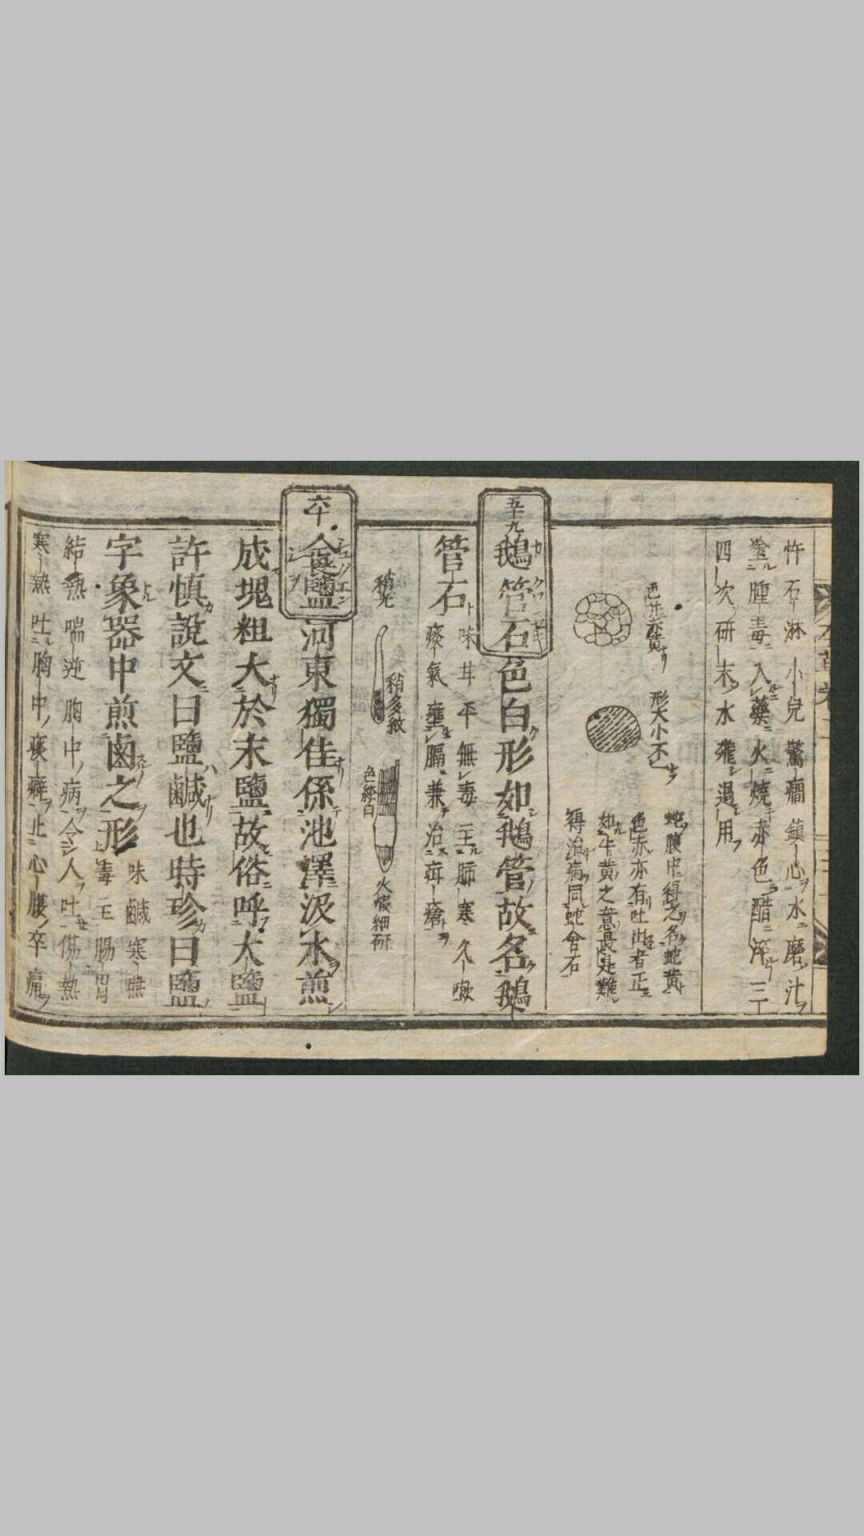 忤石淋小兒驚癇鎮心水磨汁
塗腫毒入藥火燒赤色醋淬三
四次研末水飛過用
色生赤黄
形大小不
蛇腹中得之名蛇黄
色赤亦有吐出者正
如牛黄之意長此難
得治病同蛇含石
五十九
鵝管石色白形如鵝管故名鵝
管石
味甘平無毒主肺寒久嗽
痰氣壅膈兼治疳瘡
稍光
稍多紋
色輕白
火煅細研
六十
食鹽河東獨佳係池澤汲水煎
成塊粗大於末鹽故俗呼大鹽
許慎說文曰鹽鹹也時珍曰鹽
字象器中煎鹵之形
味鹹寒無
毒主腸胃
結熱喘逆胸中病令人吐傷熱
寒熱吐胸中痰癖止心腹卒痛